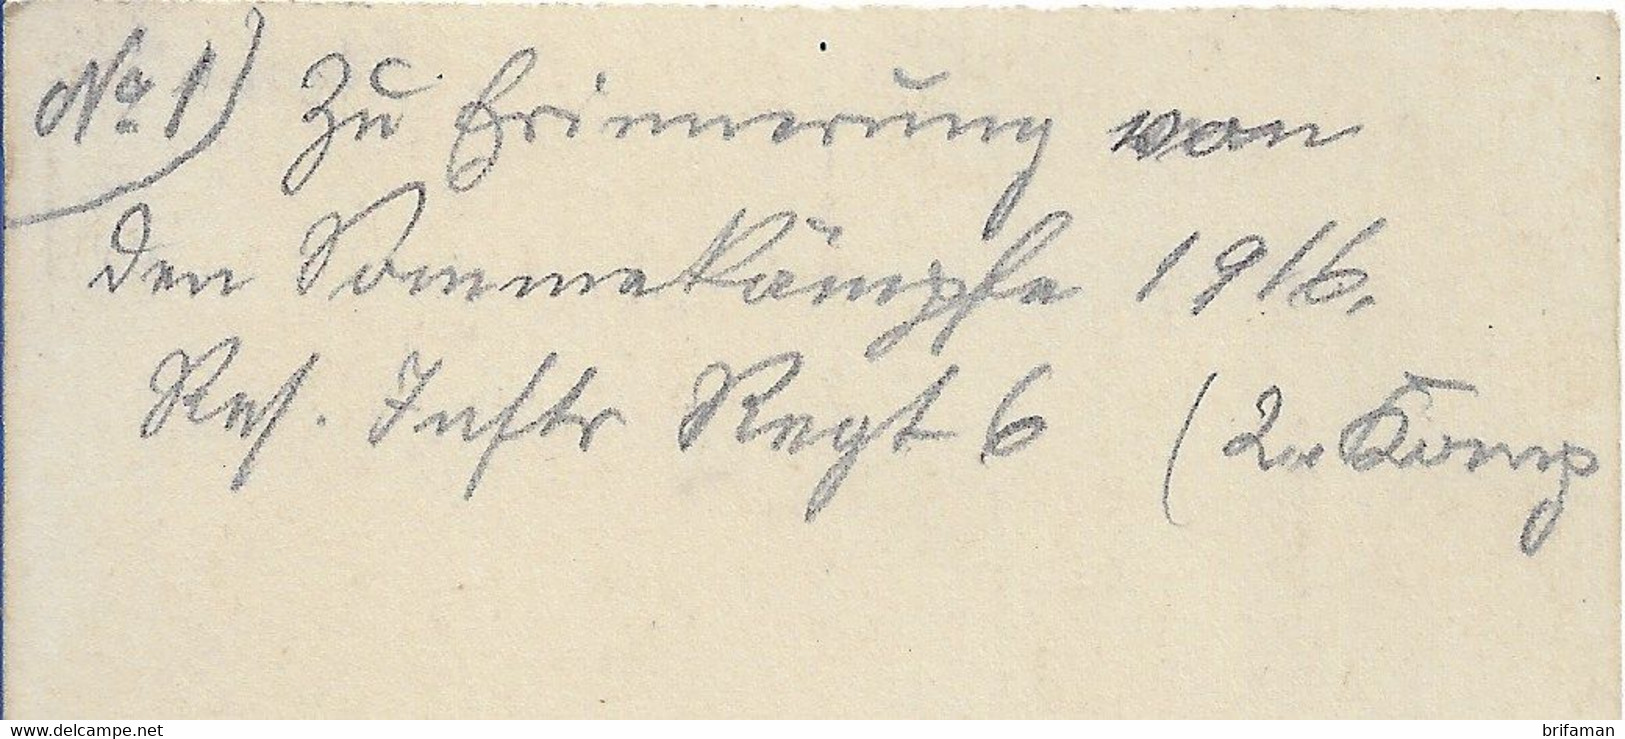 No 1) Zu Erinnerung von
den Sommekämpfe 1916.
Res. Inftr Regt 6 (2te Komp
www.delcampe.net
brifaman